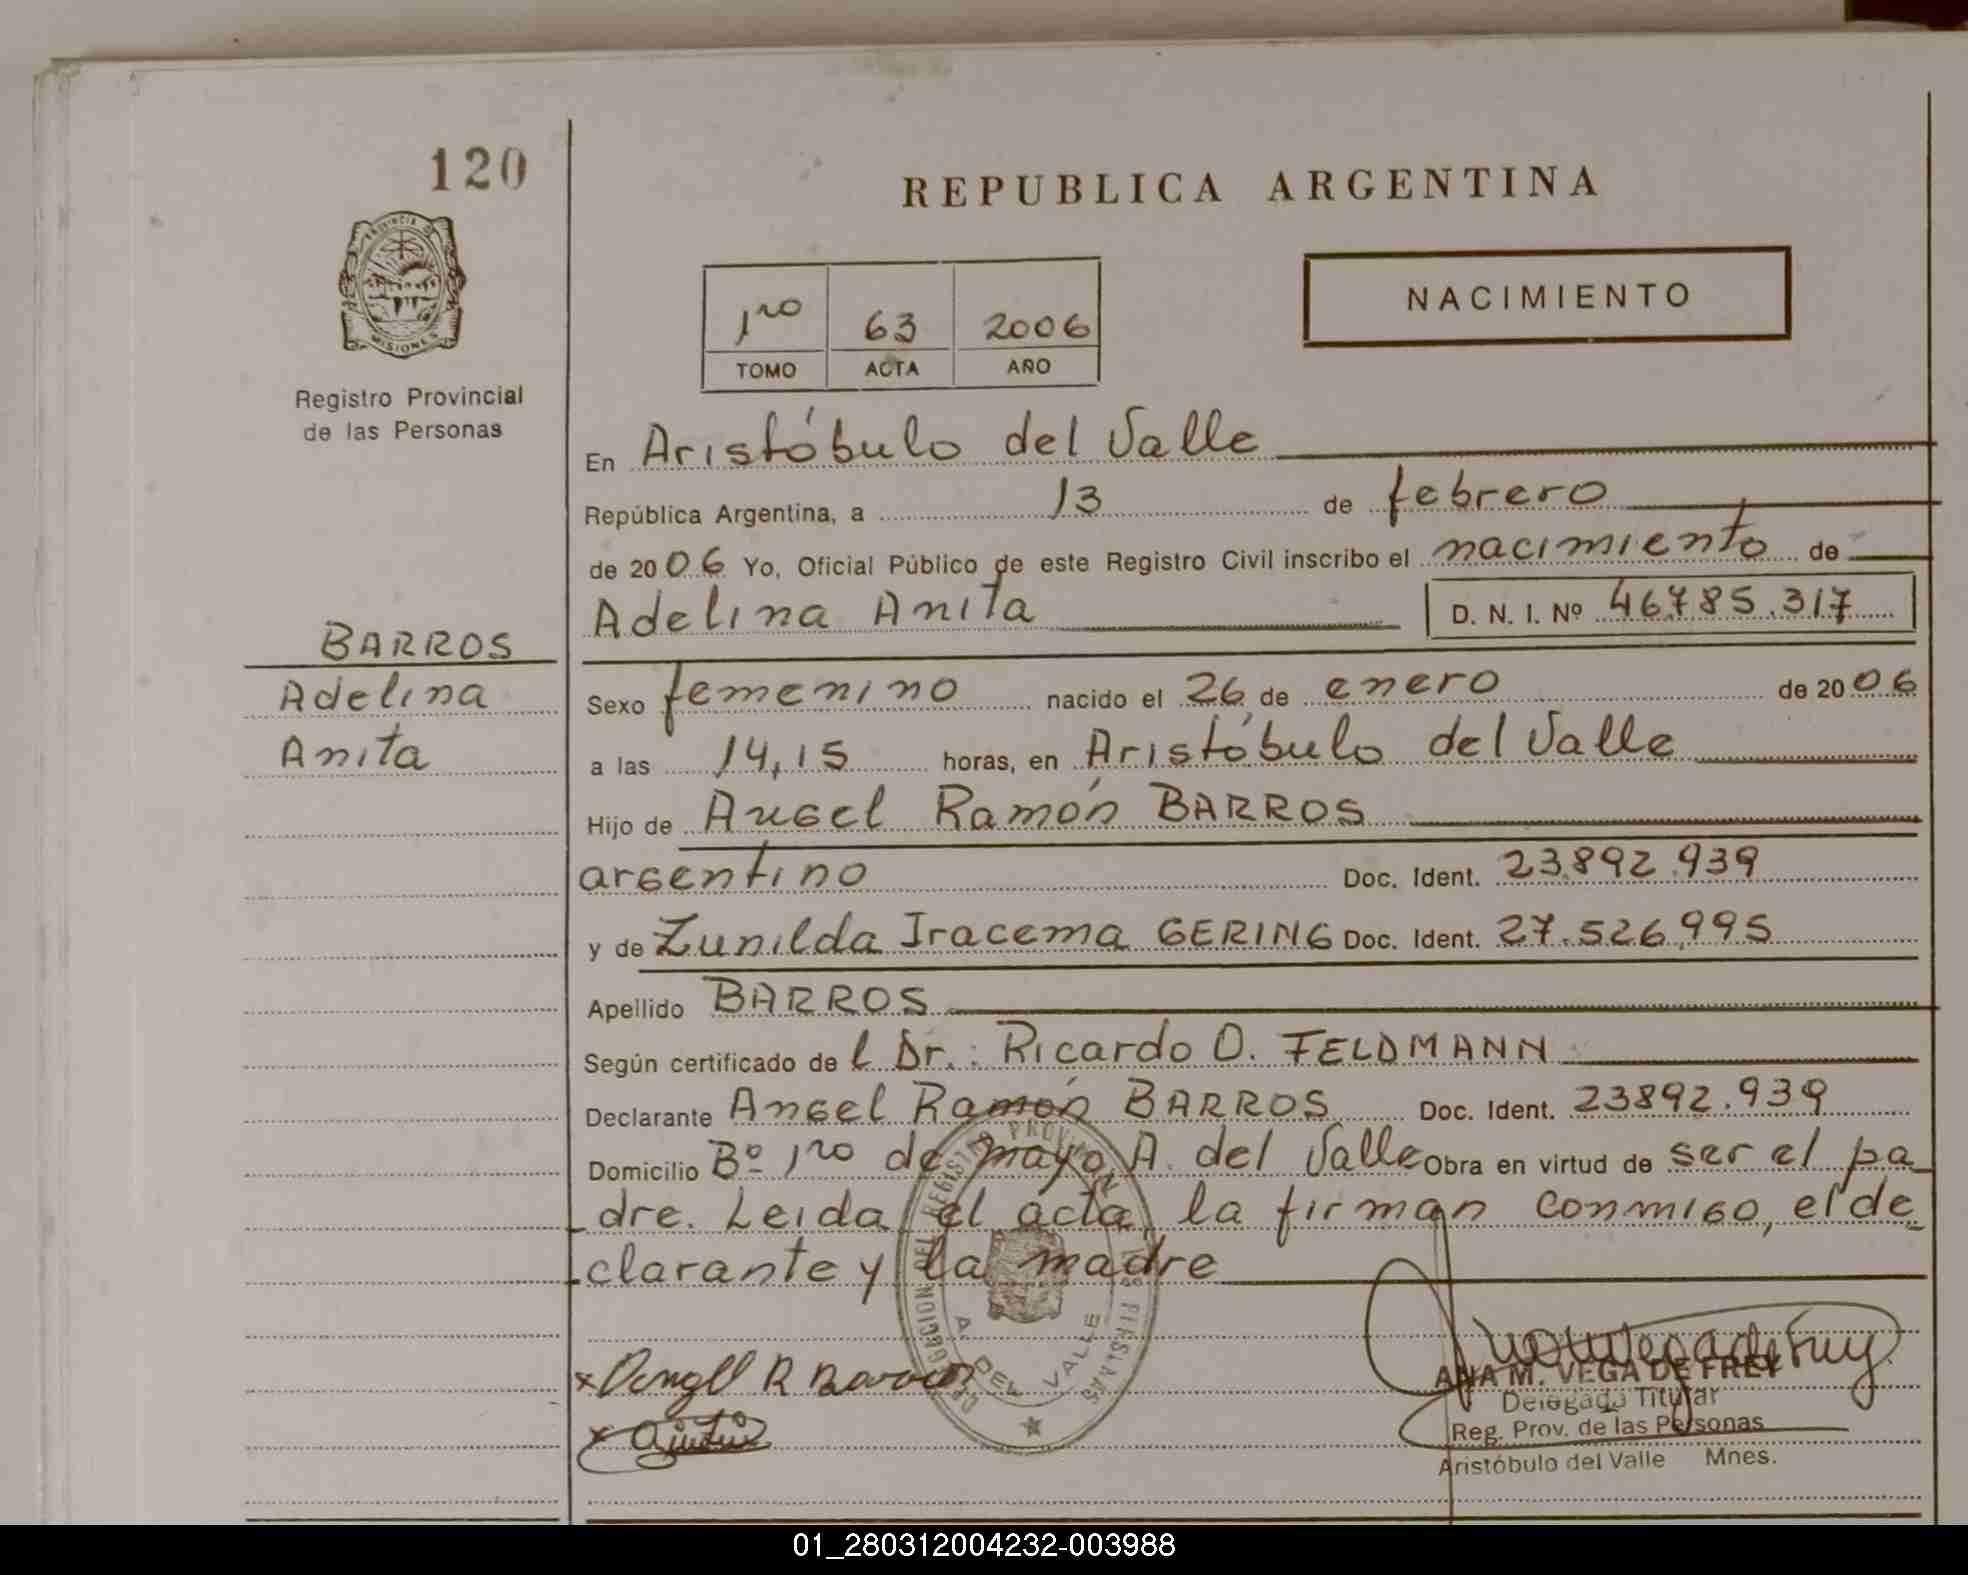 120
REPUBLICA ARGENTINA
PROVINCIA DE
MISIONES
NACIMIENTO
1ro 63 2006
TOMO ACTA AÑO
Registro Provincial
de las Personas
En Aristóbulo del Valle
República Argentina, a 13 de febrero
de 2006 Yo, Oficial Público de este Registro Civil inscribo el nacimiento de
Adelina Anita D. N. I. Nº 46.785.317
BARROS
Adelina
Anita
Sexo femenino nacido el 26 de enero de 2006
a las 14,15 horas, en Aristóbulo del Valle
Hijo de Angel Ramón BARROS
argentino Doc. Ident. 23.892.939
y de Zunilda Iracema GERING Doc. Ident. 27.526.995
Apellido BARROS
Según certificado del Dr.: Ricardo O. FELDMANN
Declarante Angel Ramón BARROS Doc. Ident. 23892.939
Domicilio Bº 1ro de mayo, A. del Valle Obra en virtud de ser el pa_
dre. Leida el acta, la firman conmigo, el de_
clarante y la madre
DELEGACION DEL REGISTRO PROVINCIAL DE LAS PERSONAS
A. DEL VALLE
x Angel R Barros
ANA M. VEGA DE FREY
Delegada Titular
Reg. Prov. de las Personas
Aristóbulo del Valle Mnes.
01_280312004232-003988